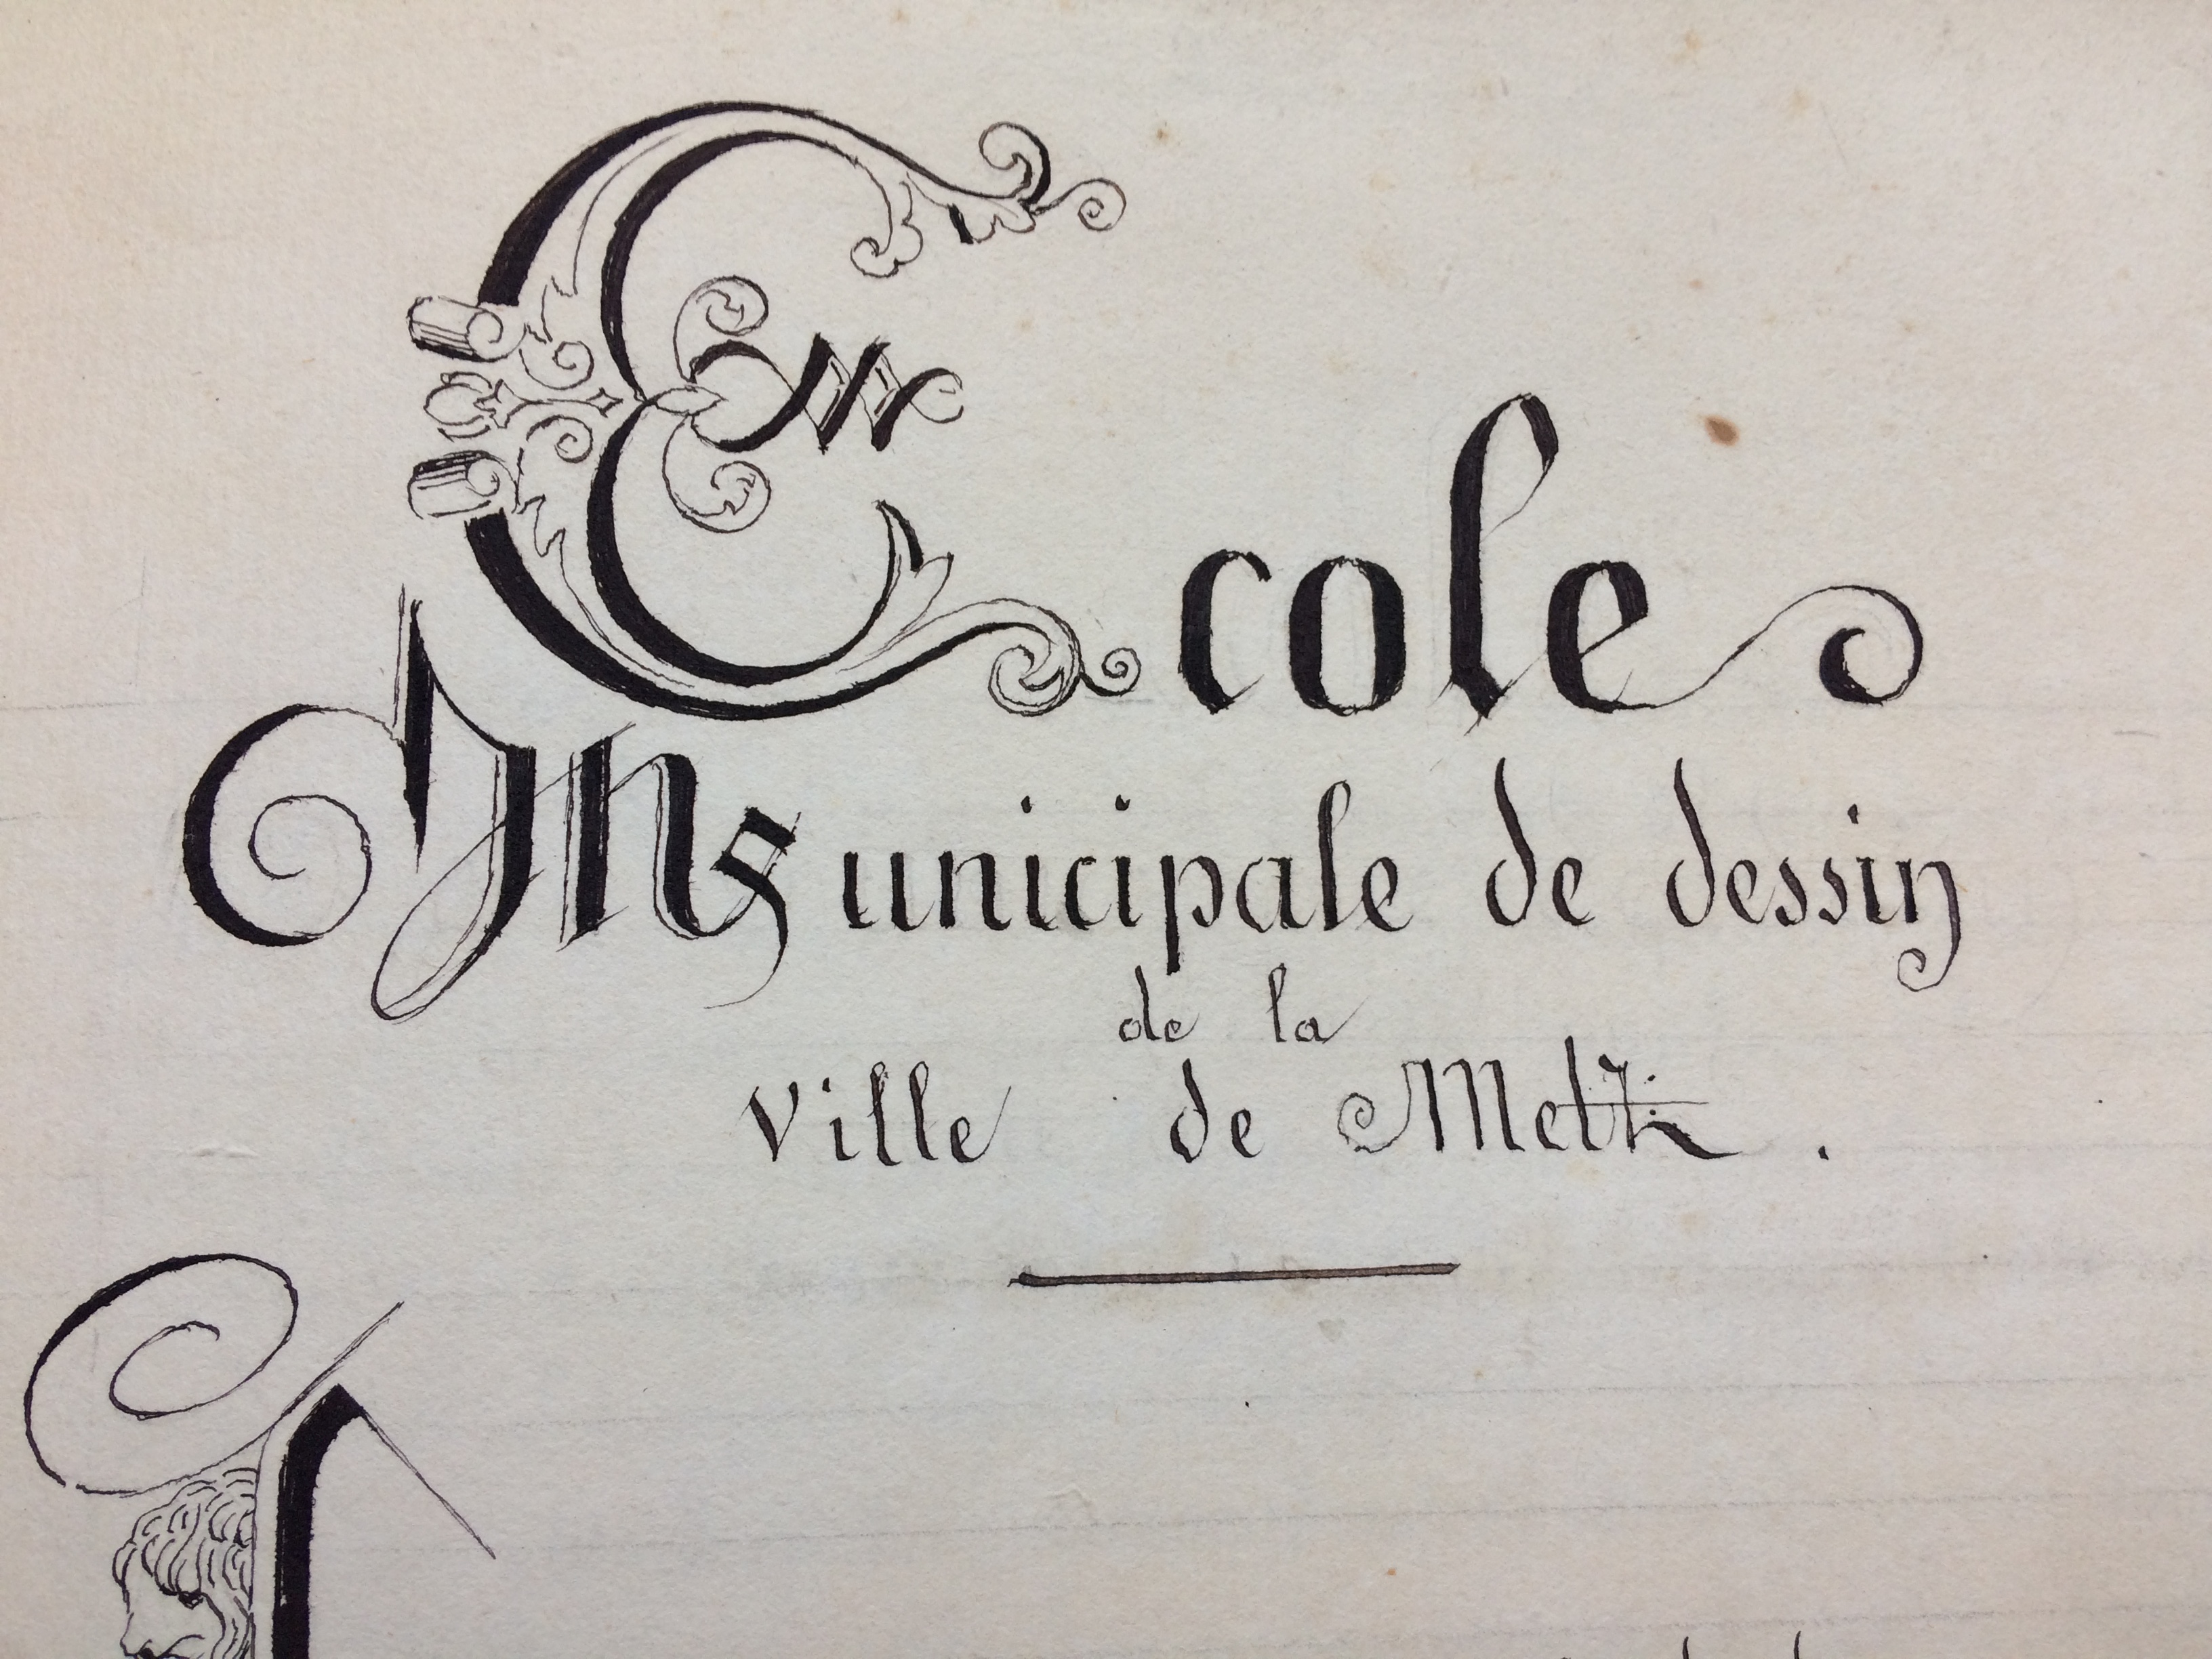 Ecole
Municipale de dessin
de la
ville de Metz.